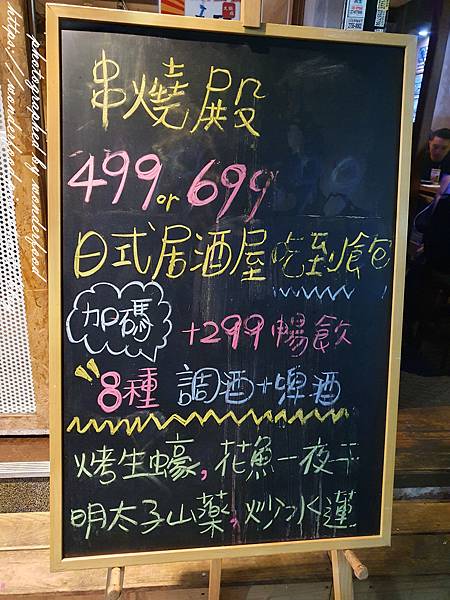 串燒殿
499 or 699
日式居酒屋吃到飽
加碼 +299暢飲
8種 調酒+啤酒
烤生蠔,花魚一夜干
明太子山藥,炒水蓮
photographed by wonderfood